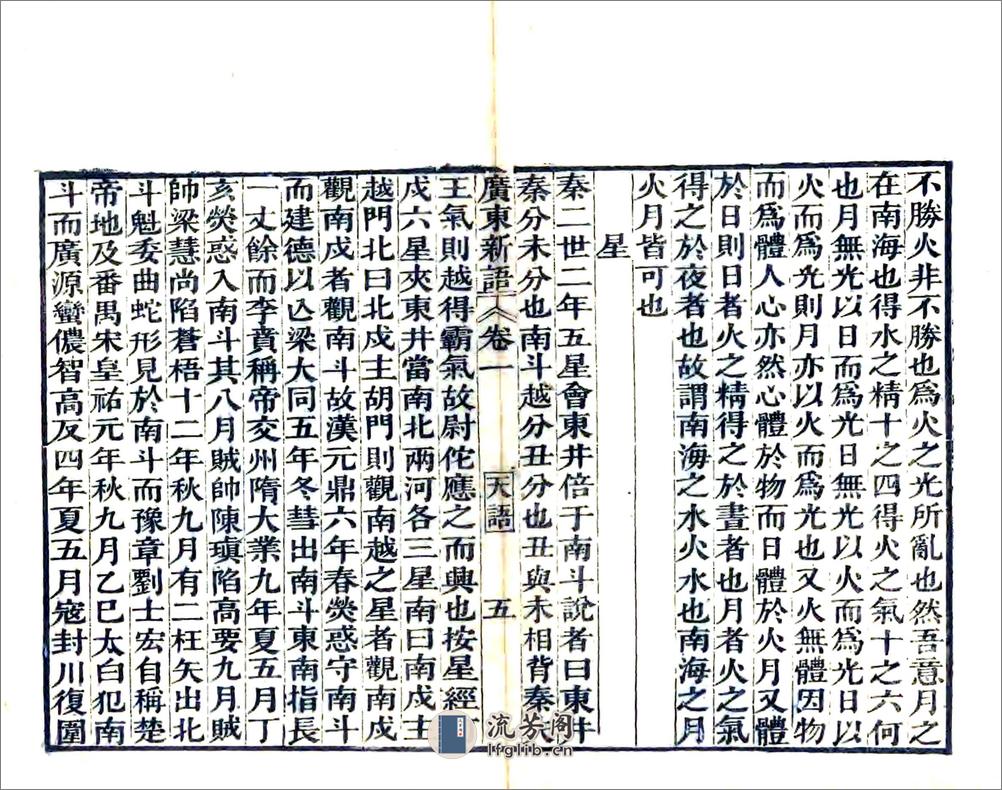 不勝火非不勝也爲火之光所亂也然吾意月之
在南海也得水之精十之四得火之氣十之六何
也月無光以日而爲光日無光以火而爲光日以
火而爲光則月亦以火而爲光也又火無體因物
而爲體人心亦然心體於物而日體於火月又體
於日則日者火之精得之於晝者也月者火之氣
得之於夜者也故謂南海之水火水也南海之月
火月皆可也
星
秦二世二年五星會東井倍于南斗說者曰東井
秦分未分也南斗越分丑分也丑與未相背秦
廣東新語 卷一 天語 五
王氣則越得霸氣故尉佗應之而興也按星經
戍六星夾東井當南北兩河各三星南曰南戍主
越門北曰北戍主胡門則觀南越之星者觀南戍
觀南戍者觀南斗故漢元鼎六年春熒惑守南斗
而建德以亾梁大同五年冬彗出南斗東南指長
一丈餘而李賁稱帝交州隋大業九年夏五月丁
亥熒惑入南斗其八月賊帥陳瑱陷高要九月賊
帥梁慧尚陷蒼梧十二年秋九月有二枉矢出北
斗魁委曲蛇形見於南斗而豫章劉士宏自稱楚
帝地及番禺宋皇祐元年秋九月乙巳太白犯南
斗而廣源蠻儂智高反四年夏五月寇封川復圍
流芳阁
lfglib.cn